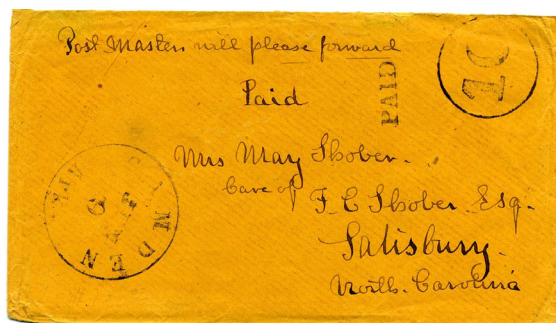 Post Master will please forward
Paid
PAID
10
Mrs Mary Shober.
Care of
F. C Shober. Esq.
Salisbury.
North. Carolina